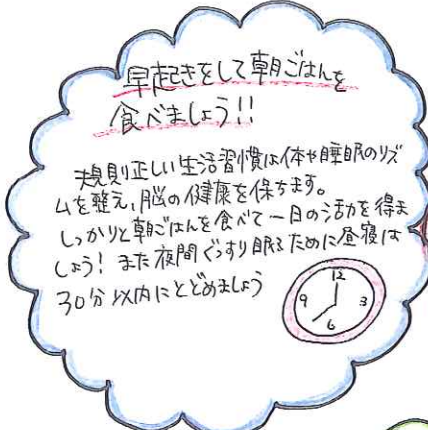 早起きをして朝ごはんを
食べましょう!!
規則正しい生活習慣は体や睡眠のリズ
ムを整え、脳の健康を保ちます。
しっかりと朝ごはんを食べて一日の活力を得ま
しょう! また夜間ぐっすり眠るために昼寝は
30分以内にとどめましょう
12
9 3
6